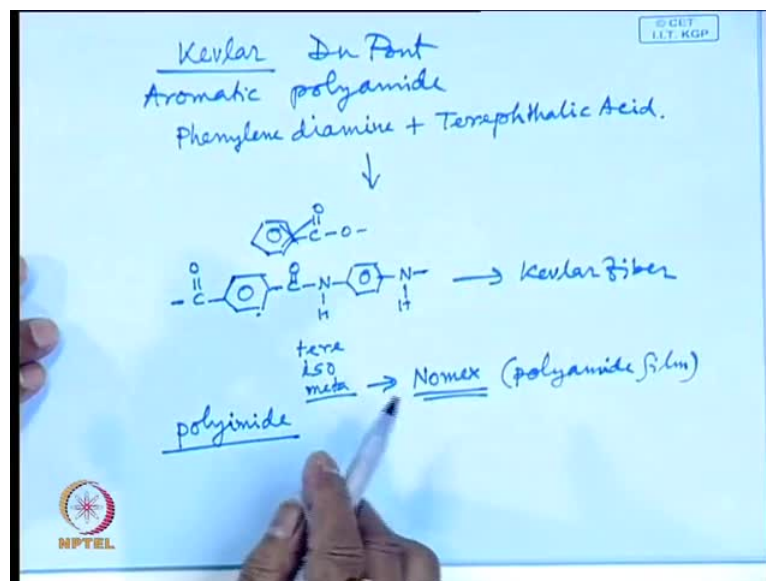 © CET
I.I.T. KGP
Kevlar Du Pont
Aromatic polyamide
Phenylene diamine + Terephthalic Acid.
O
C-O-
O O
-C- -C-N- -N- → Kevlar Fiber
H H
tere
iso
meta → Nomex (polyamide film)
polyimide
NPTEL